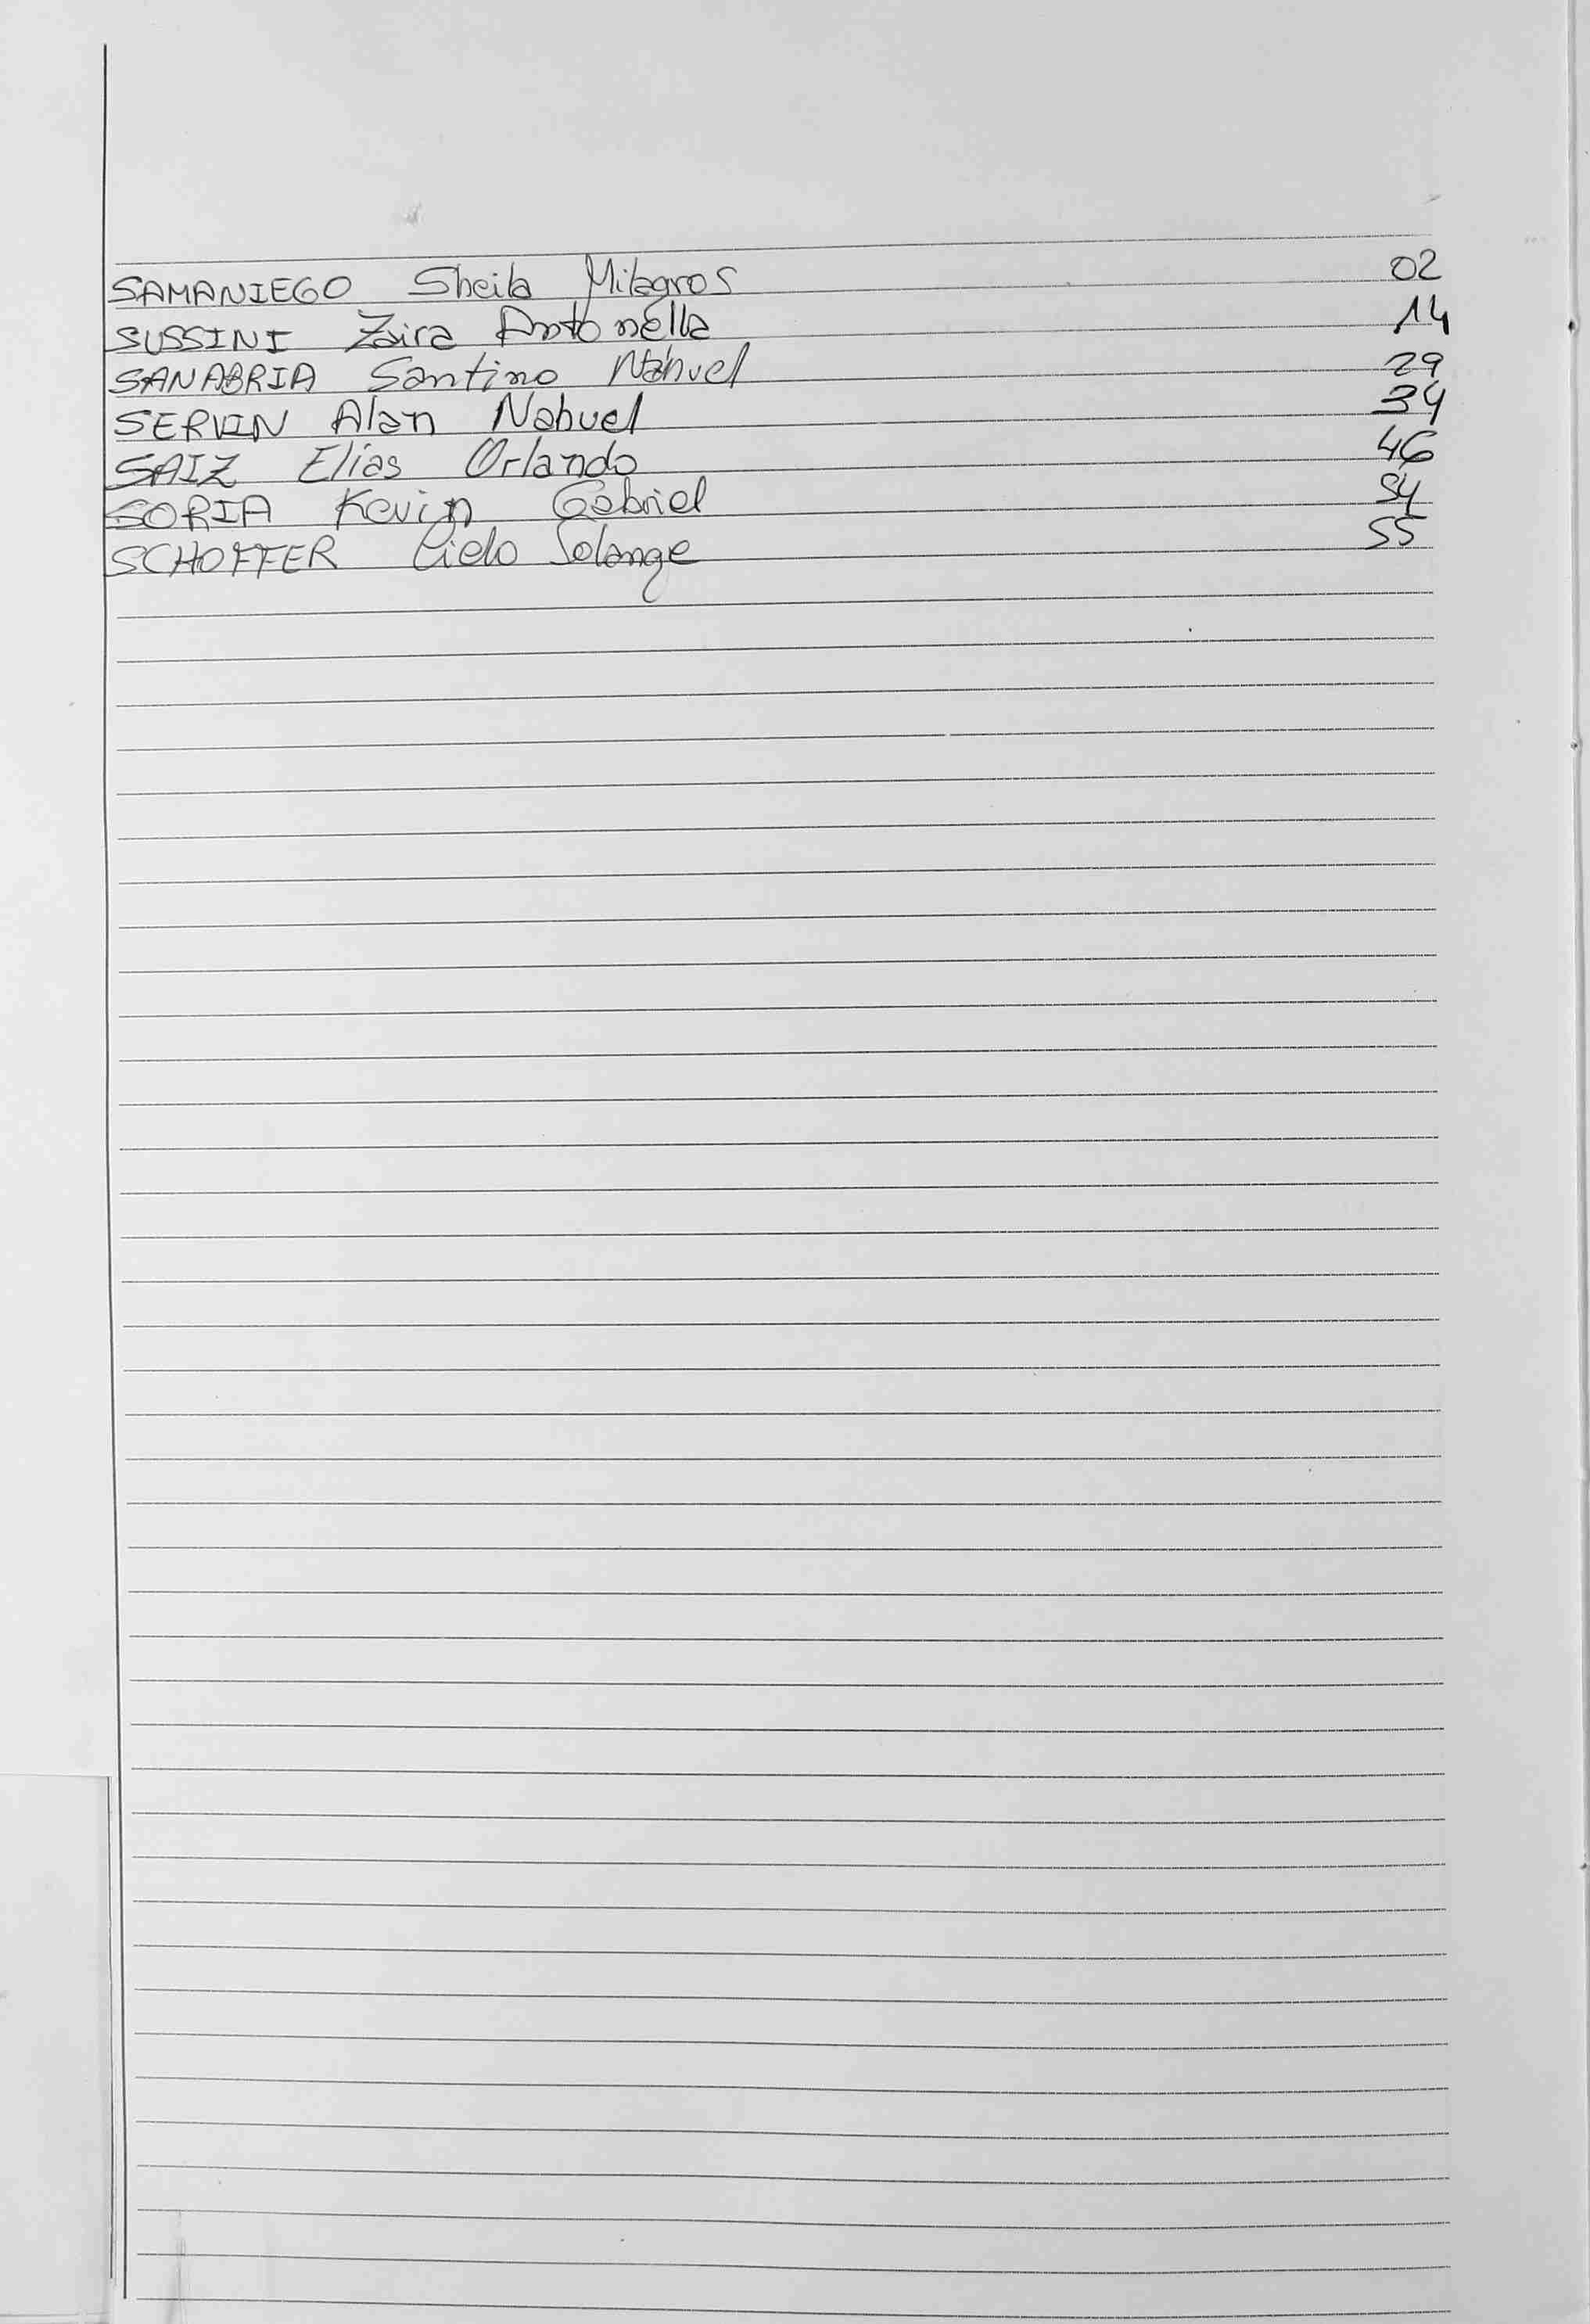 SAMANIEGO Sheila Milagros 02
SUSSINI Zaira Antonella 14
SANABRIA Santino Nahuel 29
SERVIN Alan Nahuel 34
SAIZ Elias Orlando 46
SORIA Kevin Gabriel 54
SCHOFFER Cielo Solange 55